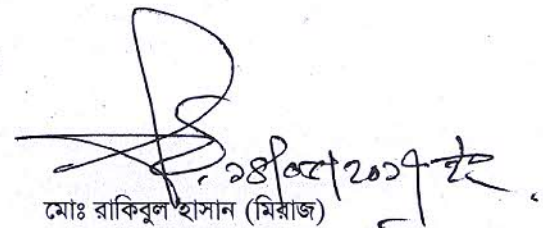 ১৪/০৫/২০১৭ ইং
মোঃ রাকিবুল হাসান (মিরাজ)